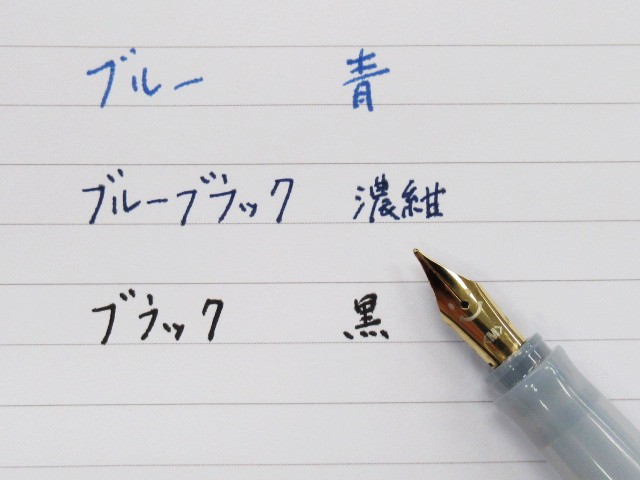 ブルー 青
ブルーブラック 濃紺
ブラック 黒
<M>